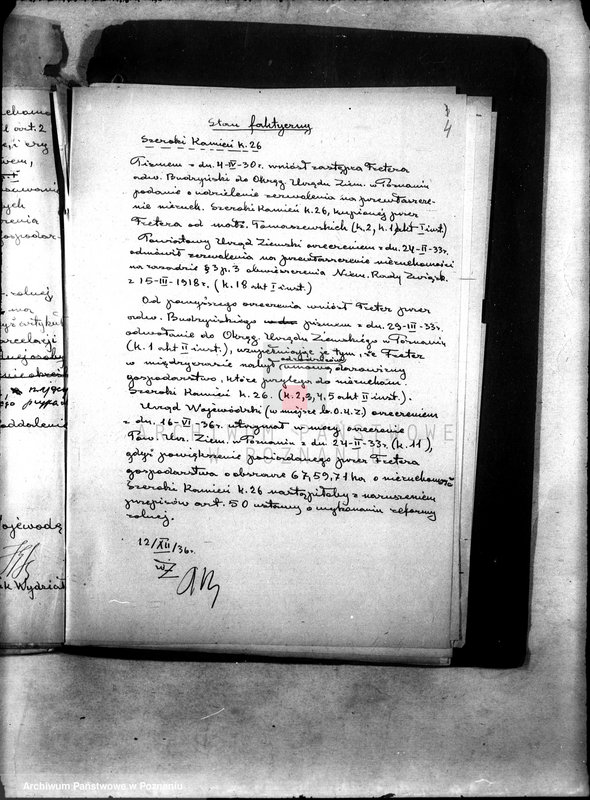 4
Stan faktyczny
Szeroki Kamień k. 26
Pismem z dn. 4-IV-30 r. wniósł zastępca Fretera
adw. Budzyński do Okręg. Urzędu Ziem. w Poznaniu
podanie o udzielenie zezwolenia na przewłaszcze-
nie nieruch. Szeroki Kamień k. 26, kupionej przez
Fretera od małż. Tomaszewskich (k. 2, k. 1 akt I inst)
Powiatowy Urząd Ziemski orzeczeniem z dn. 24-II-33 r.
odmówił zezwolenia na przewłaszczenie nieruchomości
na zasadzie § 3 p. 3 obwieszczenia Niem. Rady Związk.
z 15-III-1918 r. (k. 18 akt I inst.)
Od powyższego orzeczenia wniósł Freter przez
adw. Budzyńskiego pismem z dn. 29-III-33 r.
odwołanie do Okręg. Urzędu Ziemskiego w Poznaniu
(k. 1 akt II inst.), że Freter
w międzyczasie nabył umową darowizny
gospodarstwo, które przylega do nieruchom.
Szeroki Kamień k. 26. (k. 2, 3, 4, 5 akt II inst.).
Urząd Wojewódzki (w miejsce b. O.U.Z) orzeczeniem
z dn. 16-VI-36 r. utrzymał w mocy orzeczenie
Pow. Urz. Ziem. w Poznaniu z dn. 24-II-33 r. (k. 11),
gdyż powiększenie posiadanego przez Fretera
gospodarstwa o obszarze 67,59,71 ha o nieruchomość
Szeroki Kamień k. 26 nastąpiłoby z naruszeniem
przepisów art. 50 ustawy o wykonaniu reformy
rolnej.
12/XII/36 r.
ARCHIWUM PAŃSTWOWE
POZNAŃ
Archiwum Państwowe w Poznaniu